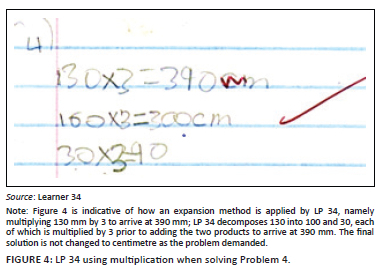 4)
130x3=390mm
100x3=300cm
30x3=90
Source: Learner 34
Note: Figure 4 is indicative of how an expansion method is applied by LP 34, namely
multiplying 130 mm by 3 to arrive at 390 mm; LP 34 decomposes 130 into 100 and 30, each
of which is multiplied by 3 prior to adding the two products to arrive at 390 mm. The final
solution is not changed to centimetre as the problem demanded.
FIGURE 4: LP 34 using multiplication when solving Problem 4.